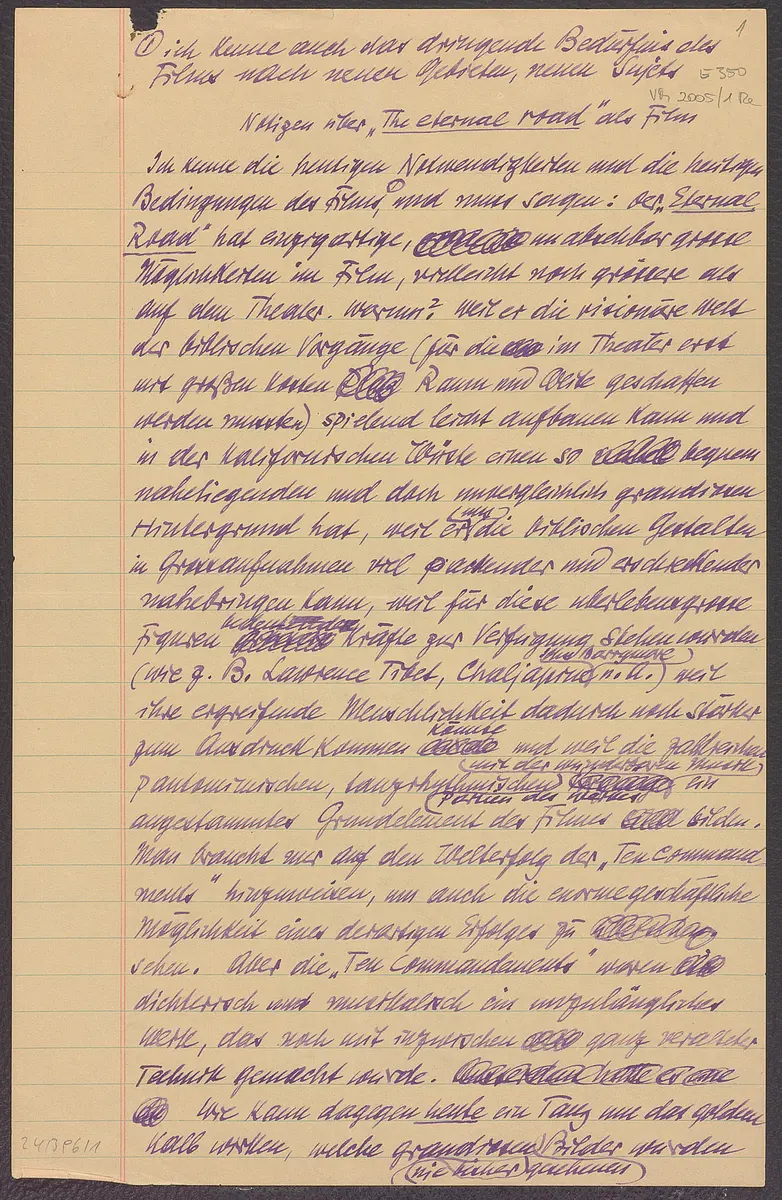 ① ich kenne auch das dringende Bedürfnis des
Films nach neuen Gebieten, neuen Sujets
1
E 350
2005/1
Notizen über „The eternal road" als Film
Ich kenne die heutigen Notwendigkeiten und die heutigen
Bedingungen des Films, und muss sagen: der „Eternal
Road" hat einzigartige, unabsehbar grosse
Möglichkeiten im Film, vielleicht noch grössere als
auf dem Theater. Warum? Weil er die visionäre Welt
der biblischen Vorgänge (für die im Theater erst
mit großen Kosten Raum und Weite geschaffen
werden mussten) spielend leicht aufbauen kann und
in der kalifornischen Wüste einen so bequem
naheliegenden und doch unvergleichlich grandiosen
Hintergrund hat, weil er (uns) die biblischen Gestalten
in Grossaufnahmen viel packender und erschreckender
nahebringen kann, weil für diese überlebensgrosse
Figuren bedeutendste Kräfte zur Verfügung stehen würden
(wie z. B. Lawrence Tibet, Chaljapin, Barrymore u.a.) weil
ihre ergreifende Menschlichkeit dadurch noch stärker
zum Ausdruck kommen könnte und weil die zahlreichen
pantomimischen, tanzrhythmischen (mit der wunderbaren Musik)
(Partien des Werkes) ein
angestammtes Grundelement des Filmes bilden.
Man braucht nur auf den Welterfolg der „Ten Command-
ments" hinzuweisen, um auch die enorme geschäftliche
Möglichkeit eines derartigen Erfolges zu
sehen. Aber die „Ten Commandements" waren
dichterisch und musikalisch ein unzulängliches
Werk, das noch mit inzwischen ganz veralteter
Technik gemacht wurde.
Wie kann dagegen heute ein Tanz um das goldene
Kalb wirken, welche grandiosen Bilder würden
(nie bisher gesehenen)
24/3961/1